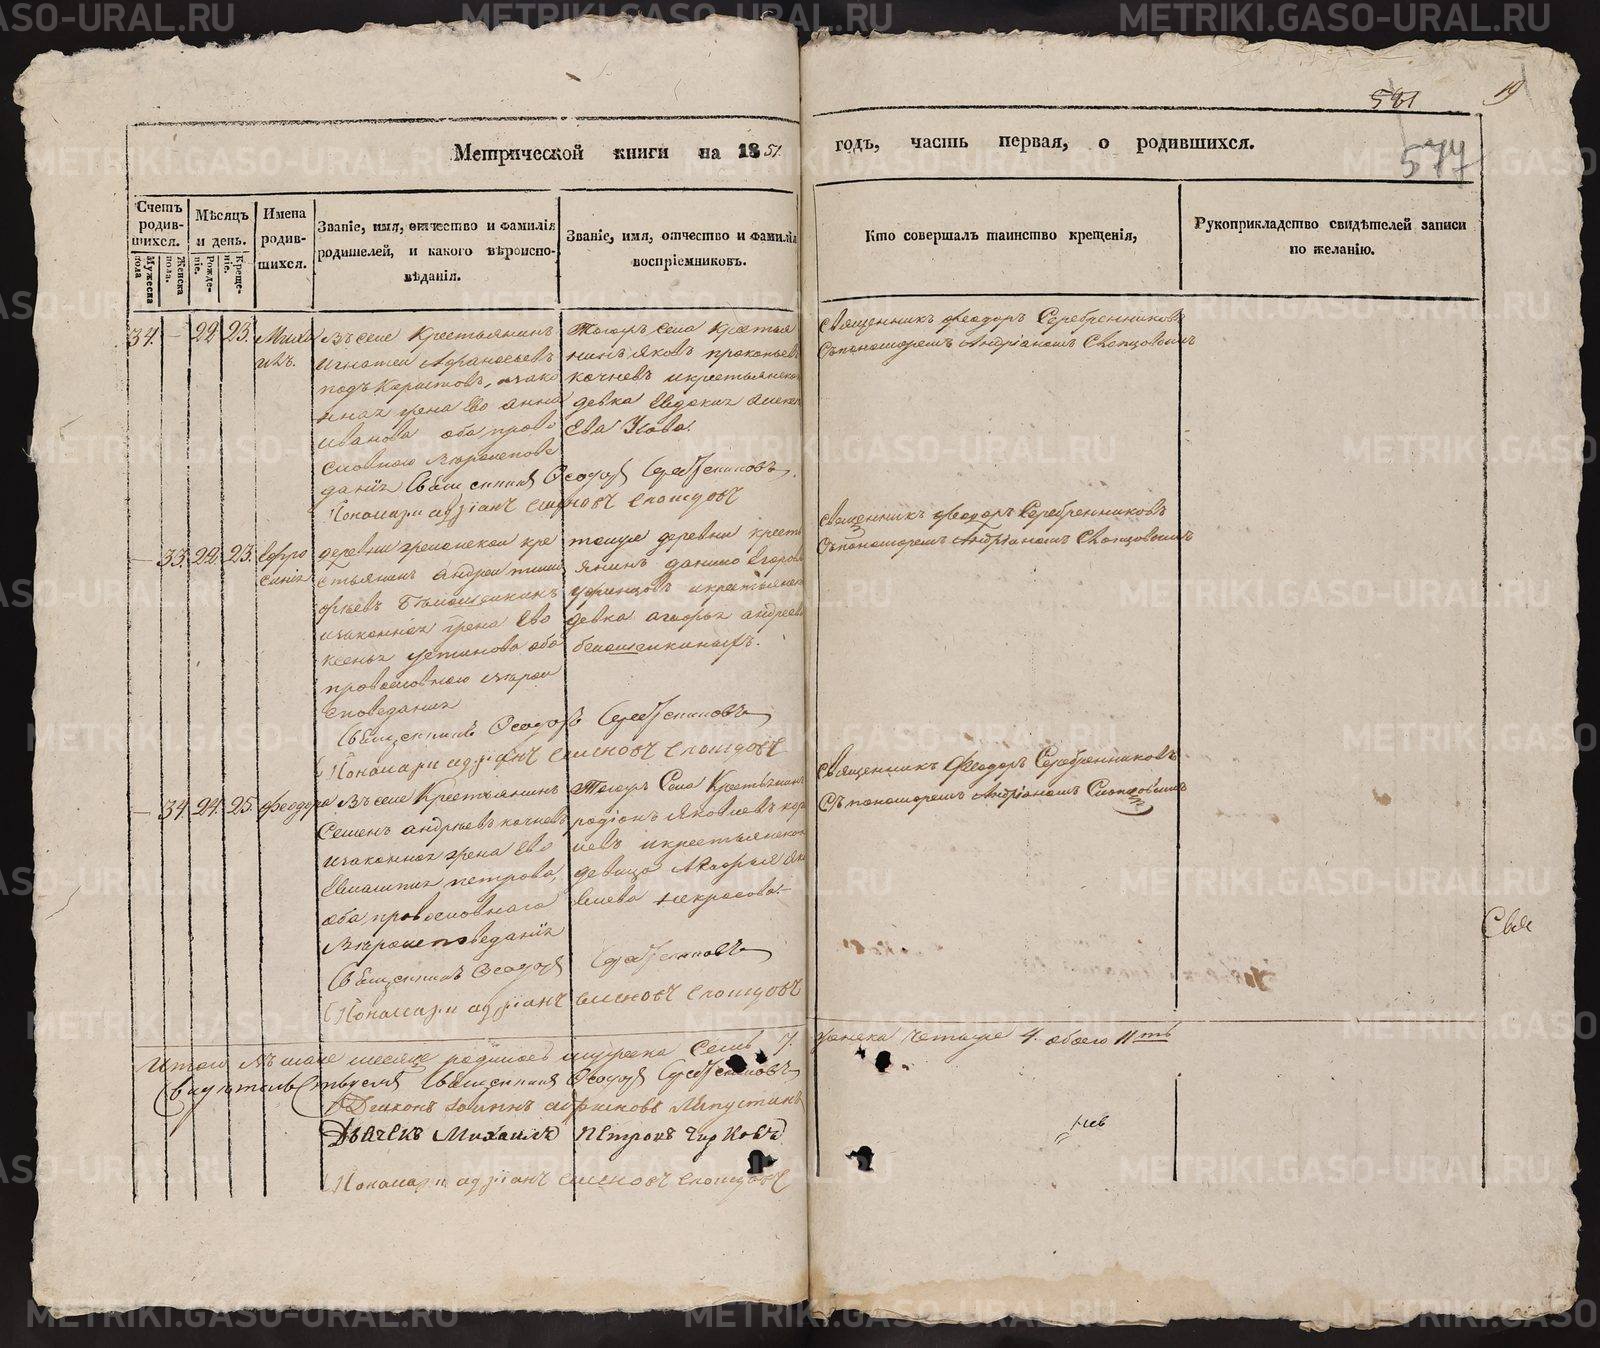 581
19
577
Метрической книги на 1851
годъ, часть первая, о родившихся.
Счетъ родив-шихся.
Мужеска пола
Женска пола.
Мѣсяцъ и день.
Рожде-нія.
Креще-нія.
Имена родив-шихся.
Званіе, имя, отчество и фамилія
родителей, и какого вѣроиспо-
вѣданія.
Званіе, имя, отчество и фамилія
воспріемниковъ.
Кто совершалъ таинство крещенія,
Рукоприкладство свидѣтелей записи
по желанію.
34. — 22 23. Миха
илъ.
Въ селе Крестьянинъ
Игнатей Афанасьевъ
жена Ево Анна
Иванова оба право
славнаго вѣроиспове
данія Священникъ Ѳеодоръ Серебрениковъ
Пономарь Адріанъ Слопцовъ
Тогожъ села Крестья
нинъ Яковъ Прокопьевъ
Кочневъ и крестьянская
девка Евдокія Алексе
ева Усова.
Священникъ Феодоръ Серебренниковъ
Съ пономаремъ Андріаномъ Слопцовымъ
— 33. 22 23. Ефро
синія
деревни кре
стьянинъ Андрей Тимо
фѣевъ
и законная жена Ево
Ксенья Устинова оба
православнаго вѣрои
споведанія
Священникъ Ѳеодоръ Серебрениковъ
Пономарь Адріанъ Слопцовъ
тоиже деревни кресть
янинъ данило Егоровъ
и крестьянская
девка Агафья Андреева
Священникъ Феодоръ Серебренниковъ
Съ пономаремъ Андріаномъ Слопцовымъ
— 34. 24. 25. Феодора
Въ селе Крестьянинъ
Семенъ Андрѣевъ Кочневъ
и законная жена Ево
Евлампия Петрова,
оба православнаго
Вѣроисповеданія
Священникъ Ѳеодоръ Серебрениковъ
Пономарь Адріанъ Слопцовъ
Тогожъ Села Крестьянинъ
родіонъ Яковлевъ
и крестьянская
девица Агафья Яко
влева Некрасова.
Священникъ Феодоръ Серебренниковъ
Съ пономаремъ Андріаномъ Слопцовымъ
Свя
Итого въ мае месяце родилось мужеска Семь 7. женска Четыре 4. обоего 11ть
Свидѣтельствуемъ Священникъ Ѳеодоръ Серебрениковъ
Диаконъ Іоаннъ Лапустинъ
Дьячекъ Михаилъ Петровъ
Пономарь Адріанъ Слопцовъ